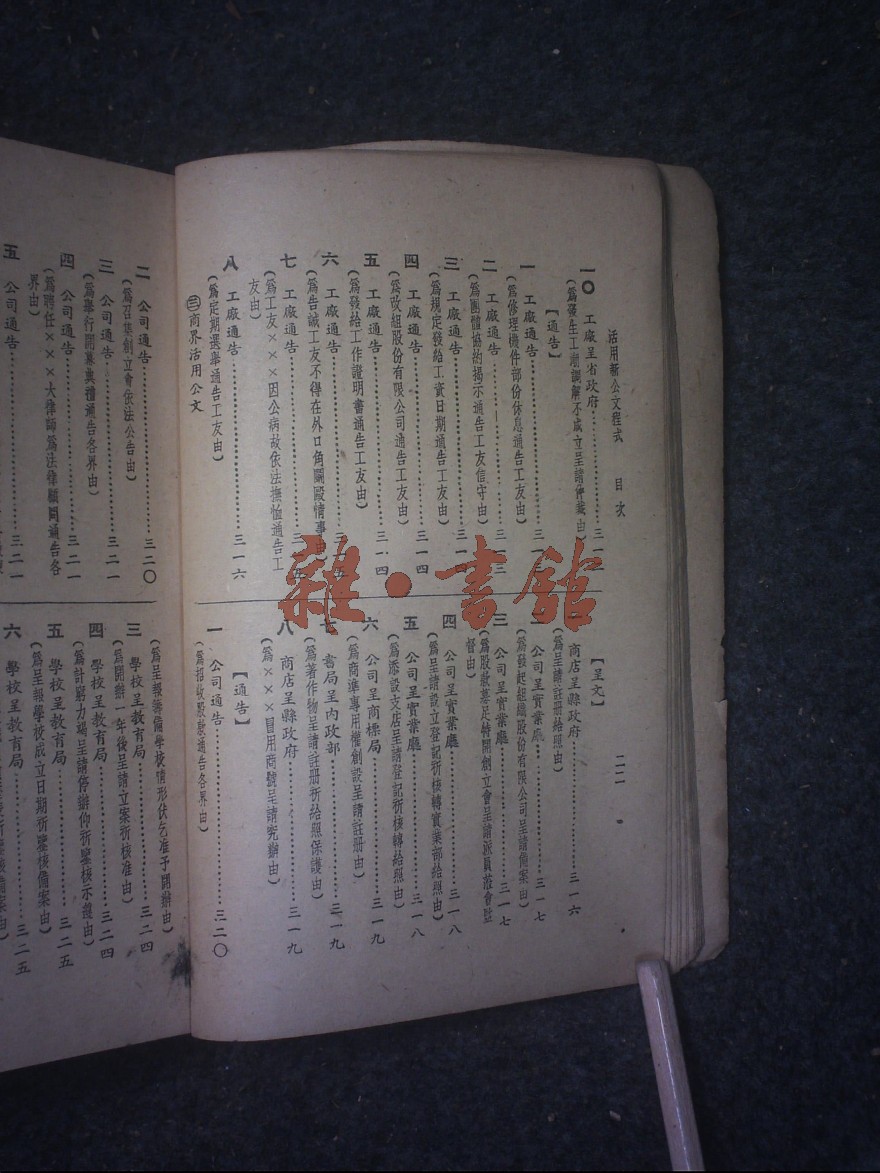 活用新公文程式　目次　二二
一〇　工廠呈省政府
(爲發生工潮調解不成立呈請仲裁由)
【通告】
一　工廠通告
(爲修理機件部份休息通告工友由)
二　工廠通告
(爲團體協約揭示通告工友信守由)
三　工廠通告
(爲規定發給工資日期通告工友由)
四　工廠通告……三一四
(爲改組股份有限公司通告工友由)
五　工廠通告……三一四
(爲發給工作證明書通告工友由)
六　工廠通告
(爲告誡工友不得在外口角鬭毆情事由)
七　工廠通告
(爲工友×××因公病故依法撫恤通告工
友由)
八　工廠通告……三一六
(爲定期選舉通告工友由)
㊂商界活用公文
【呈文】
一　商店呈縣政府……三一六
(爲呈請註册給照由)
二　公司呈實業廳……三一七
(爲發起組織股份有限公司呈請備案由)
三　公司呈實業廳……三一七
(爲股款募足特開創立會呈請派員蒞會監
督由)
四　公司呈實業廳……三一八
(爲呈請設立登記祈核轉實業部給照由)
五　公司呈實業廳……三一八
(爲添設支店呈請登記祈核轉給照由)
六　公司呈商標局……三一九
(爲商準專用權創設呈請註册由)
七　書局呈内政部……三一九
(爲著作物呈請註册祈給照保護由)
八　商店呈縣政府……三一九
(爲×××冒用商號呈請究辦由)
【通告】
一　公司通告……三二〇
(爲招收股款通告各界由)
二　公司通告……三二〇
(爲召集創立會依法公告由)
三　公司通告……三二一
(爲舉行開幕典禮通告各界由)
四　公司通告……三二一
(爲聘任×××大律師爲法律顧問通告各
界由)
五　公司通告……三二一
(爲呈報籌備學校情形伏乞准予開辦由)
三　學校呈教育局……三二四
(爲開辦一年後呈請立案祈核准由)
四　學校呈教育局……三二四
(爲計窮力竭呈請停辦仰祈鑒核示遵由)
五　學校呈教育局……三二五
(爲呈報學校成立日期祈鑒核備案由)
六　學校呈教育局……三二五
雜·書館